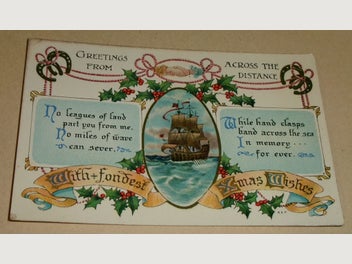 Greetings from
Across the distance
No leagues of land
part you from me.
No miles of wave
can sever.
While hand clasps
hand across the sea
In memory ...
for ever.
With + fondest
Xmas Wishes